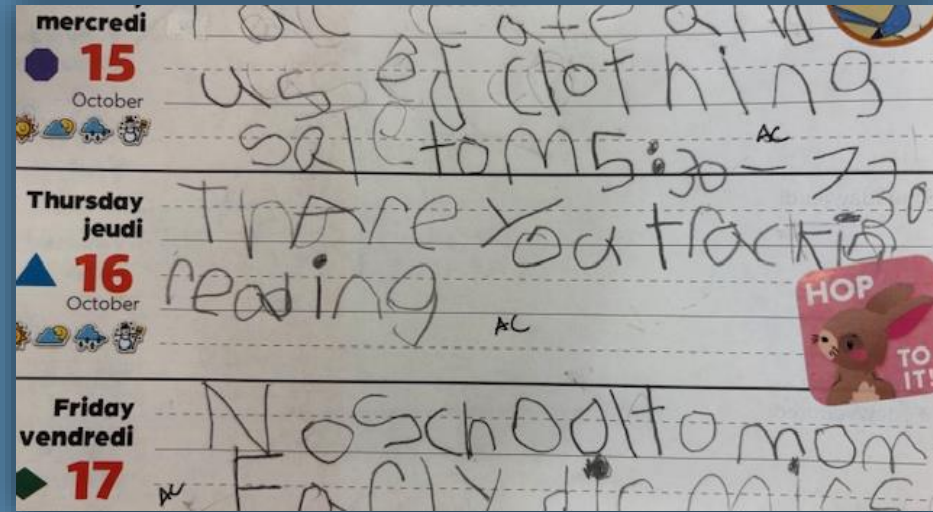 mercredi
15
October
used clothing
sale tom 5:30 - 7:30
AC
Thursday
jeudi
16
October
Thare You tracking
reading
AC
HOP
TO
IT!
Friday
vendredi
17
No School tomom
Early dismiss
AC